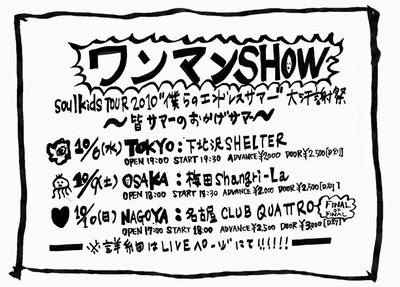 ワンマンSHOW
soulkids TOUR 2010 "僕らのエンドレスサマー" 大汗謝祭
〜皆サマーのおかげサマ〜
10/6(水) TOKYO:下北沢SHELTER
OPEN 19:00 START 19:30 ADVANCE ¥2000 DOOR ¥2,500[D別]
10/9(土) OSAKA:梅田Shangri-La
OPEN 18:00 START 18:30 ADVANCE ¥2,000 DOOR ¥2,500[D別]
10/10(日) NAGOYA:名古屋 CLUB QUATTRO FINAL FINAL
OPEN 17:00 START 18:00 ADVANCE ¥2,500 DOOR ¥3,000[D別]
※詳細はLIVEページにて!!!!!